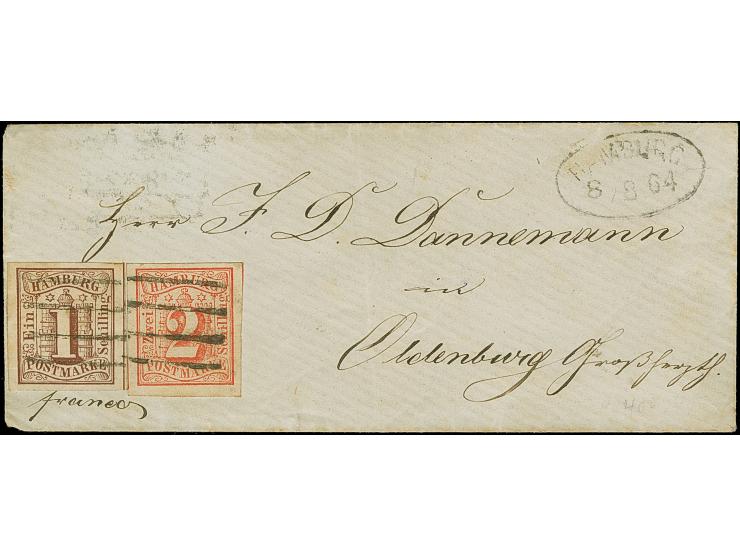 HAMBURG
8/8 64
Herr J. D. Dannemann
in
Oldenburg Großherzth.
HAMBURG
Ein
1
Schilling
POSTMARKE
HAMBURG
Zwei
2
Schilling
POSTMARKE
franco